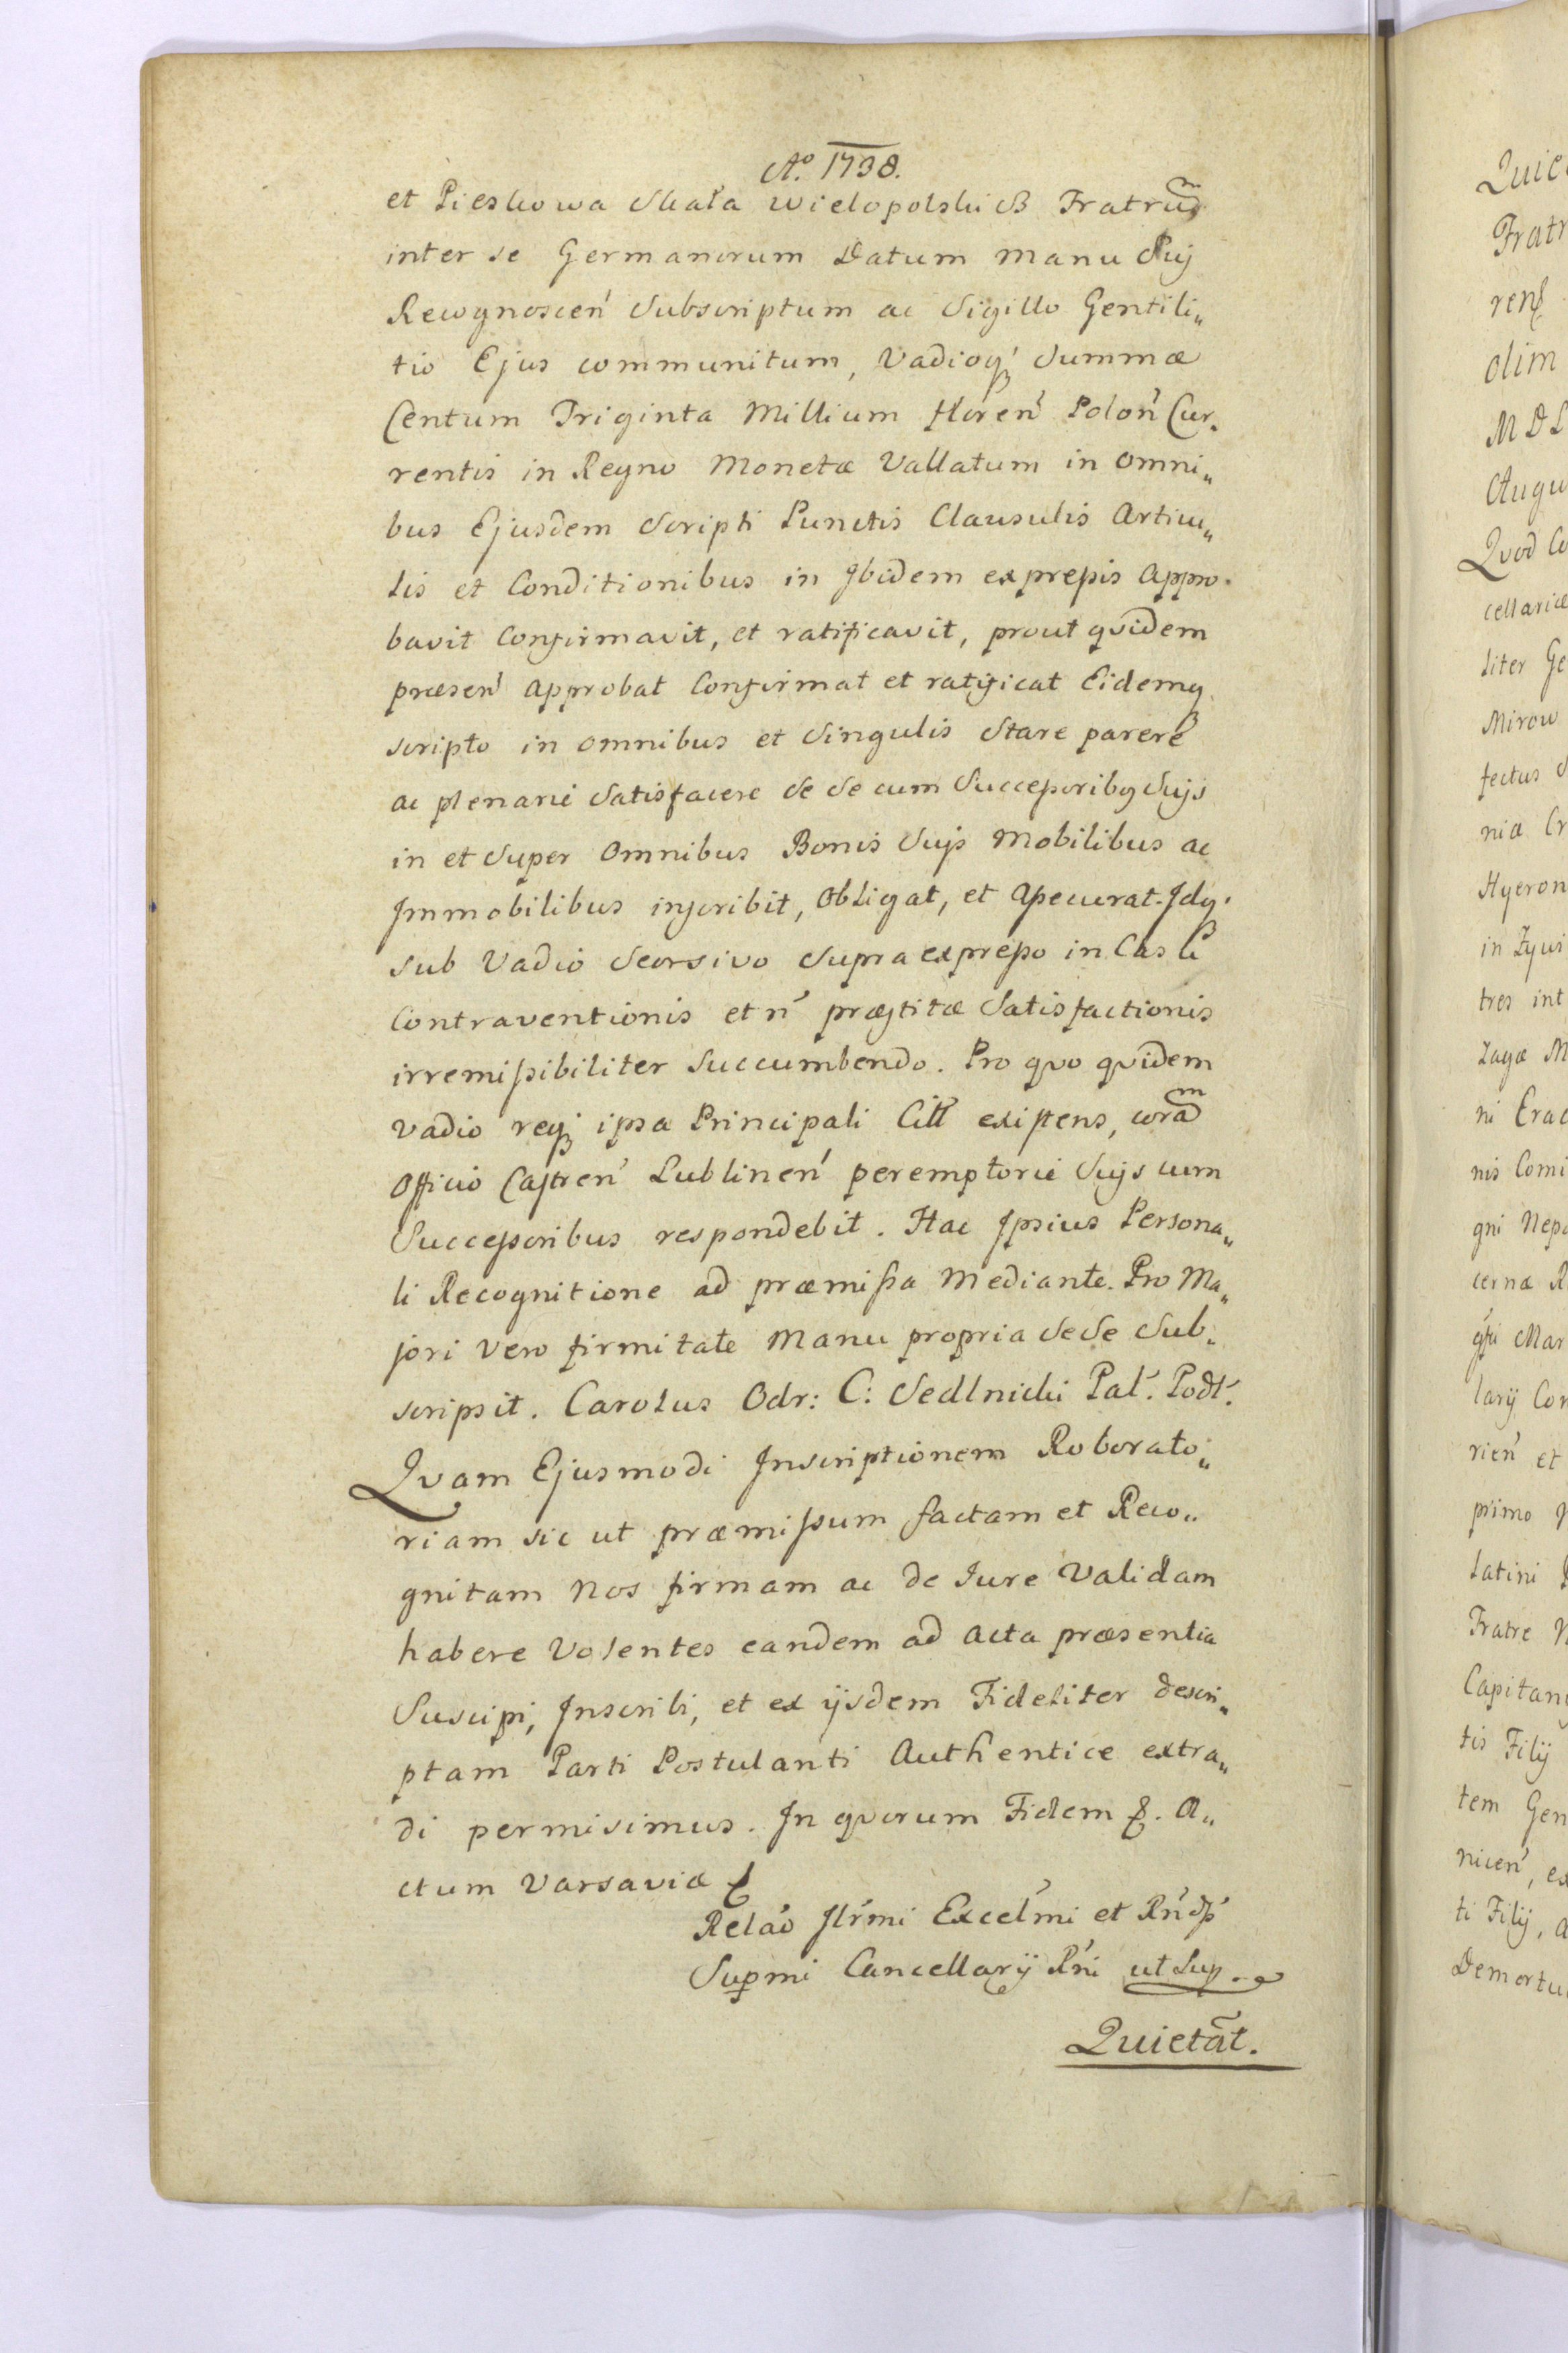 Aº. 1738.
et Pieskowa Skała Wielopolskich Fratrum
inter se Germanorum Datum manu Sui
Recognoscen̄ Subscriptum ac Sigillo Gentili„
tio Ejus communitum, Vadioq́ Summæ
Centum Triginta Millium floren̄ Polon̄ Cur„
rentis in Regno Monetæ Vallatum in omni„
bus Ejusdem Scripti Punctis Clausulis Articu„
lis et Conditionibus in Ibidem expressis Appro„
bavit Confirmavit, et ratificavit, prout qvidem
præsen̄ Approbat Confirmat et ratificat Eidemq
scripto in omnibus et Singulis Stare parere
ac plenarie Satisfacere Se Se cum Successoribq Suis
in et Super Omnibus Bonis Suis Mobilibus ac
Immobilibus inscribit, Obligat, et Assecurat. Idq.
sub Vadio Seorsivo Supra expresso in Casu
Contraventionis et n̄ præstitæ Satisfactionis
irremissibiliter Succumbendo. Pro qvo qvidem
Vadio req ipsa Principali Citt existens, coram
Officio Castren̄ Lublinen̄ peremptorie Suis cum
Successoribus respondebit. Hac Ipsius Persona„
li Recognitione ad præmissa Mediante. Pro Ma„
jori Vero firmitate Manu propria Se Se Sub„
scripsit. Carolus Odr: C: Sedlnicki Pal. Podl.
Qvam Ejusmodi Inscriptionem Roborato„
riam sic ut præmissum factam et Reco„
gnitam Nos firmam ac de Iure Validam
habere Volentes eandem ad Acta præsentia
Suscipi, Inscribi, et ex ijsdem Fideliter descri„
ptam Parti Postulanti Authentice extra„
di permisimus. In qvorum Fidem &. A„
ctum Varsaviæ &
Relao Illr̄mi Excell̄mi et Rn̄d
Supmi Cancellarij Rn̄i ut Sup.
Quietat.
Quic
Fratr
ren
olim
M D L
Augu
Qvod Co
cellariæ
liter Ge
Mirow
fectus S
niæ Cr
Hyeron
in Zywi
tres int
Zagæ M
ni Crac
nis Comi
gni Nepo
cernæ R
Mar
larij Con
rien̄ et
primo
Latini
Fratre
Capitan
tis Filij
tem Gen
nicen̄, ex
ti Filij, a
Demortu